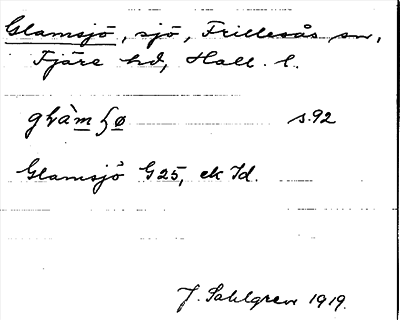 Glamsjö, sjö, Frillesås sn,
Fjäre hd, Hall. l.
glàmʃø s. 92
Glamsjö G25, ek Id.
J. Sahlgren 1919.